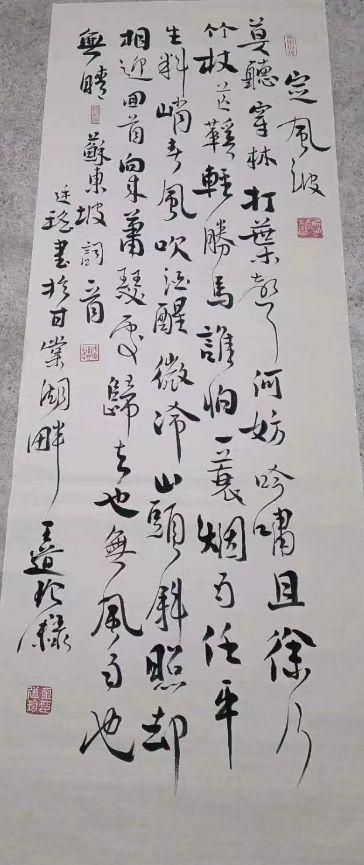 定風波
莫聽穿林打葉聲何妨吟嘯且徐行
竹杖芒鞋輕勝馬誰怕一蓑烟雨任平
生料峭春風吹酒醒微冷山頭斜照却
相迎回首向来蕭瑟處歸去也無風雨也
無晴 蘇東坡詞一首
書於甘棠湖畔 王道珍